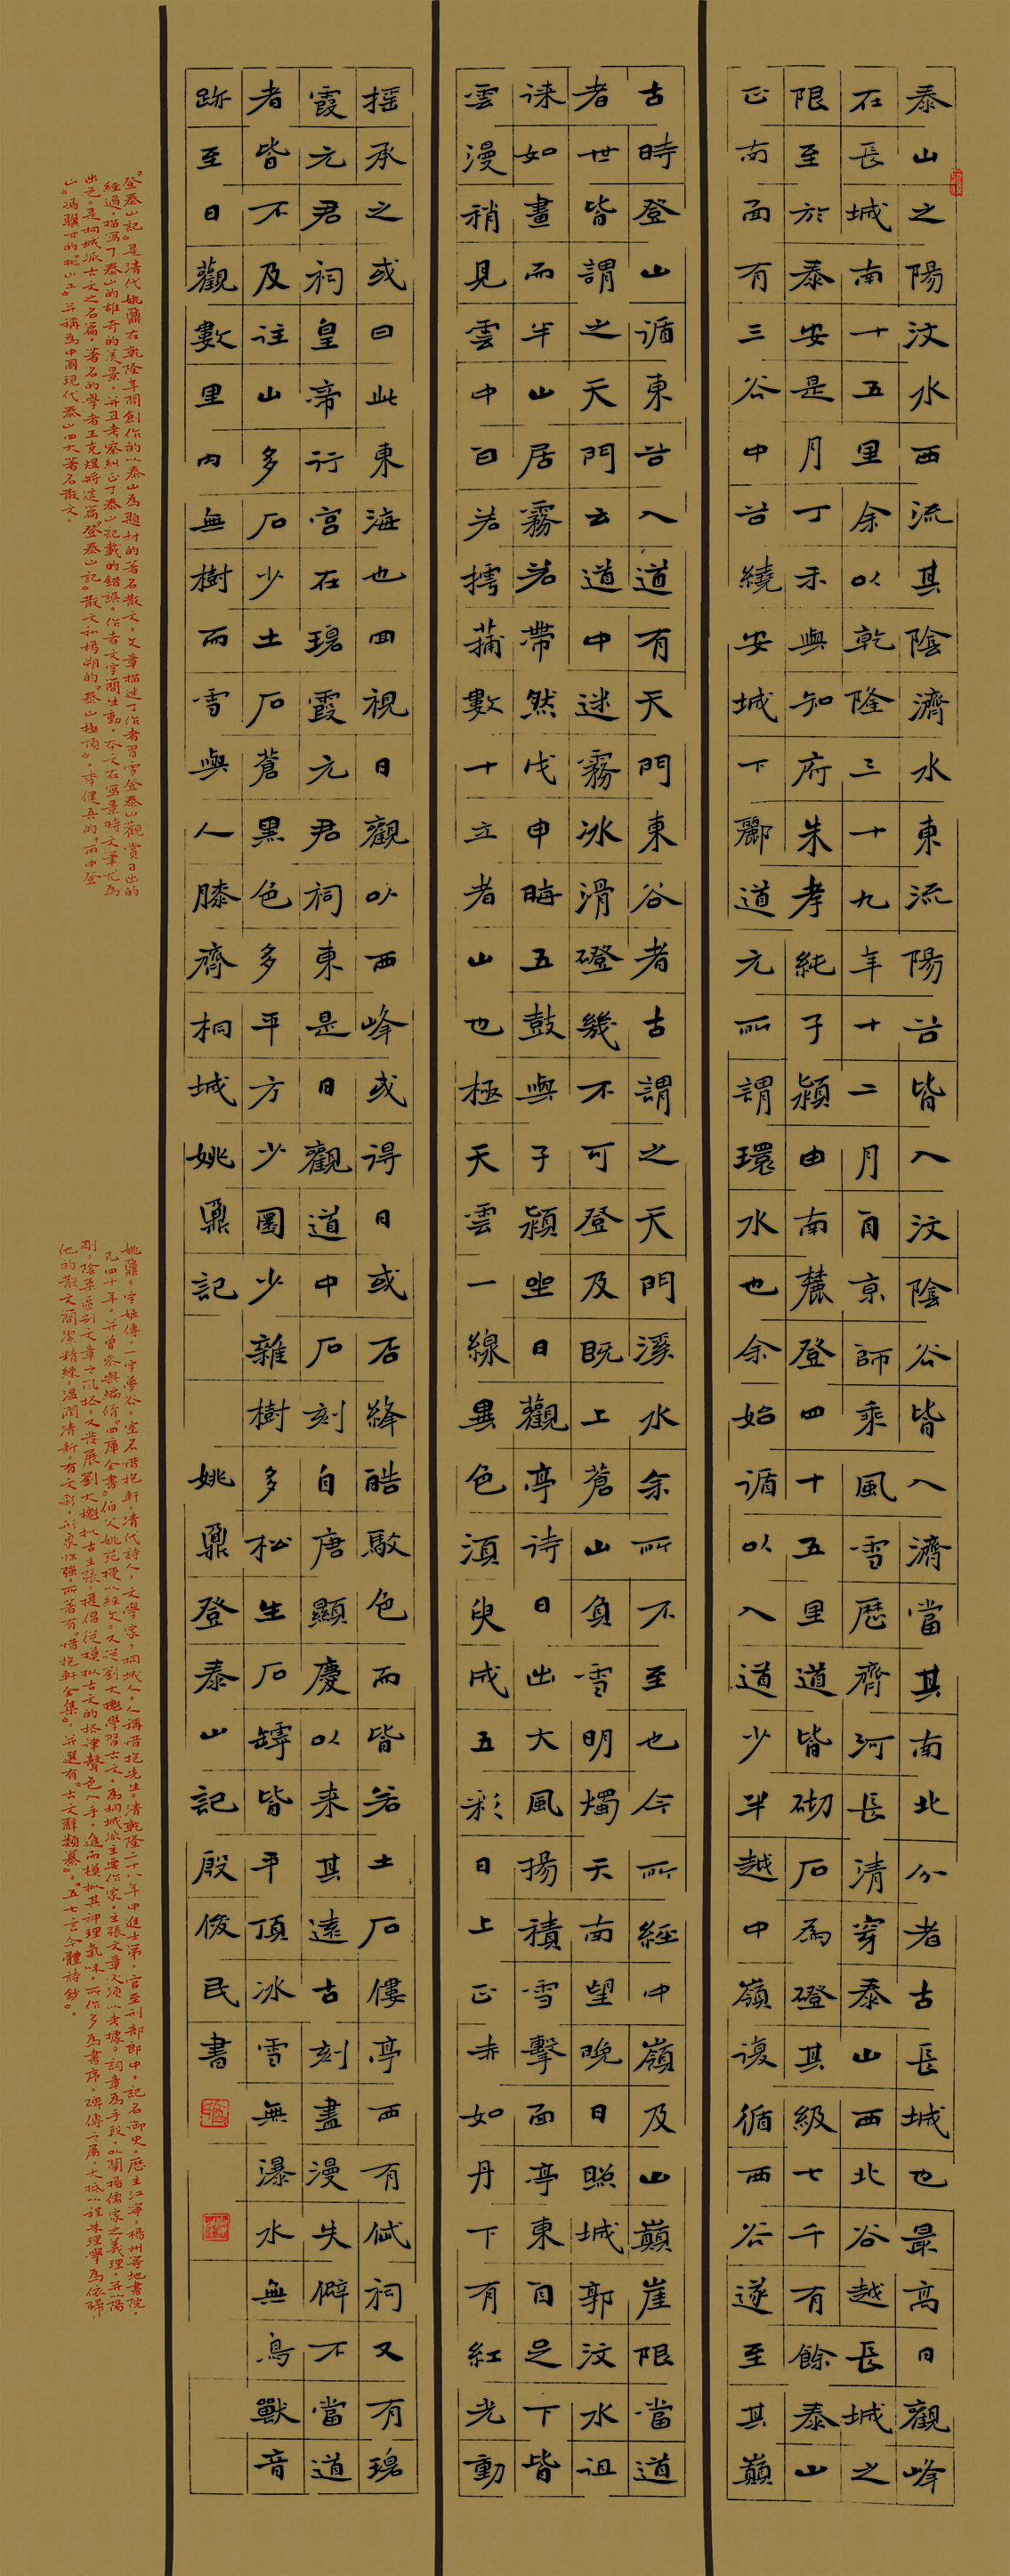 泰山之陽汶水西流其陰濟水東流陽谷皆入汶陰谷皆入濟當其南北分者古長城也最高日觀峰
在長城南十五里余以乾隆三十九年十二月自京師乘風雪歷齊河長清穿泰山西北谷越長城之
限至於泰安是月丁未與知府朱孝純子潁由南麓登四十五里道皆砌石為磴其級七千有餘泰山
正南面有三谷中谷繞安城下酈道元所謂環水也余始循以入道少半越中嶺復循西谷遂至其巔
古時登山循東谷入道有天門東谷者古謂之天門溪水余所不至也今所經中嶺及山巔崖限當道
者世皆謂之天門云道中迷霧冰滑磴幾不可登及既上蒼山負雪明燭天南望晚日照城郭汶水徂
徠如畫而半山居霧若帶然戊申晦五鼓與子潁坐日觀亭待日出大風揚積雪擊面亭東自足下皆
雲漫稍見雲中白若摴蒱數十立者山也極天雲一線異色須臾成五彩日上正赤如丹下有紅光動
搖承之或曰此東海也回視日觀以西峰或得日或否絳皓駁色而皆若土石僂亭西有岱祠又有碧
霞元君祠皇帝行宮在碧霞元君祠東是日觀道中石刻自唐顯慶以來其遠古刻盡漫失僻不當道
者皆不及往山多石少土石蒼黑色多平方少圜少雜樹多松生石罅皆平頂冰雪無瀑水無鳥獸音
跡至日觀數里內無樹而雪與人膝齊桐城姚鼐記 姚鼐登泰山記殷俊民書
"登泰山記"是清代姚鼐在乾隆年間創作的以泰山為題材的著名散文。文章描述了作者冒雪登泰山觀賞日出的
經過，描寫了泰山的雄奇的美景，并且考察糾正了泰山記載的錯誤。作者文字簡生動，本文在寫景時文筆尤為
出色，是桐城派古文之名篇。著名的學者王克煜將這篇"登泰山記"散文和楊朔的"泰山極頂"，李健吾的"雨中登
山"馮驥才的"挑山工"并稱為中國現代泰山四大著名散文。
姚鼐，字姬傳，一字夢谷，室名惜抱軒，清代詩人，文學家，桐城人，人稱惜抱先生。清乾隆二十八年中進士第，官至刑部郎中。記名御史。歷主江寧，揚州等地書院，
凡四十年，并曾參與編修"四庫全書"伯父姚范授以經文。又從劉大櫆學習古文。為桐城派主要作家，主張文章必須以考據。詞章為手段，以闡揚儒家之義理，并以陽
剛，陰柔區別文章之風格。又發展劉大櫆擬古主張，提倡從模擬古文的格律聲色入手，進而模擬其神理氣味。所作多為書序，碑傳之屬，大抵以程朱理學為依歸。
他的散文簡潔精練，溫潤清新，有文彩，形象性強，所著有"惜抱軒全集"，并選有"古文辭類纂"、"五七言今體詩鈔"。